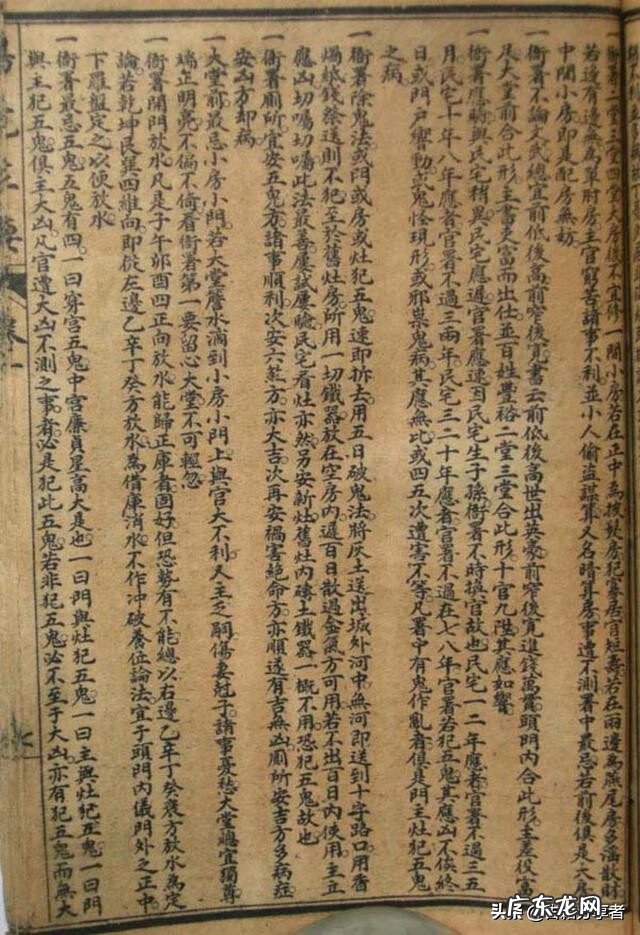 一衙署二堂三堂四堂大房後不宜得一間小房若在正中為挾煞房犯寡居官短壽若在兩邊為燕尾房多淫散財
若邊有邊無為單肘房主官窮苦諸事不利並小人偷盜謀算又名暗算房事遭不測署中最忌若前後俱是大房
中間小房即是配房無妨
一衙署不論文武總宜前低後高前窄後寬書云前低後高世出英豪前窄後寬進錢萬貫頭門內合此形主差役富
足大堂前合此形主書吏富而出仕並百姓豐裕二堂三堂合此形十官九陞其應如響
一衙署應驗與民宅稍與民宅應遲官署應速因民宅生子孫衙署不時換官故也民宅一二年應者官署不過三五
月民宅十年八年應者官署不過三兩年民宅三二十年應者官署不過在七八年官署若犯五鬼其應凶不俟終
日或門戶響動或鬼怪現形或邪祟鬼病其應無比或四五次遭害不等凡署中有鬼作亂者俱是門主灶犯五鬼
之病
一衙署除鬼法或門或房或灶犯五鬼速即拆去用五日破鬼法將灰土送出城外河中無河即送到十字路口用香
燭紙錢祭送則不犯至於舊灶房所用一切鐵器放在空房內過百日散過金氣方可用若不出百日內使用主立
應凶切囑切囑此法最善屢試屢驗民宅看灶亦然另安新灶舊灶內磚土鐵器一概不用恐犯五鬼故也
一衙署廁所宜安五鬼方諸事順利次安六煞方亦大吉次再安禍害絕命方亦順遂有吉無凶廁所安吉方多病症
安凶方却病
一大堂前最忌小房小門若大堂簷水滴到小房小門上與官大不利又主乏嗣傷妻尅子諸事憂愁大堂總宜獨尊
端正明亮不偏不倚看衙署第一要留心大堂不可輕忽
一衙署開門放水凡是子午卯酉四正向放水能歸正庫者固好但恐勢有不能總以右邊乙辛丁癸衰方放水為定
論若乾坤艮巽四維向即從左邊乙辛丁癸方放水為借庫消水不作冲破養位論法宜于頭門內儀門外之正中
下羅盤定之以便放水
一衙署最忌五鬼五鬼有四一曰穿宮五鬼中宮廉貞星高大是也一曰門與灶犯五鬼一曰主與灶犯五鬼一曰門
與主犯五鬼俱主大凶凡官遭大凶不測之事者必是犯此五鬼若非犯五鬼必不至于大凶亦有犯五鬼而無大
头条
广东龙网